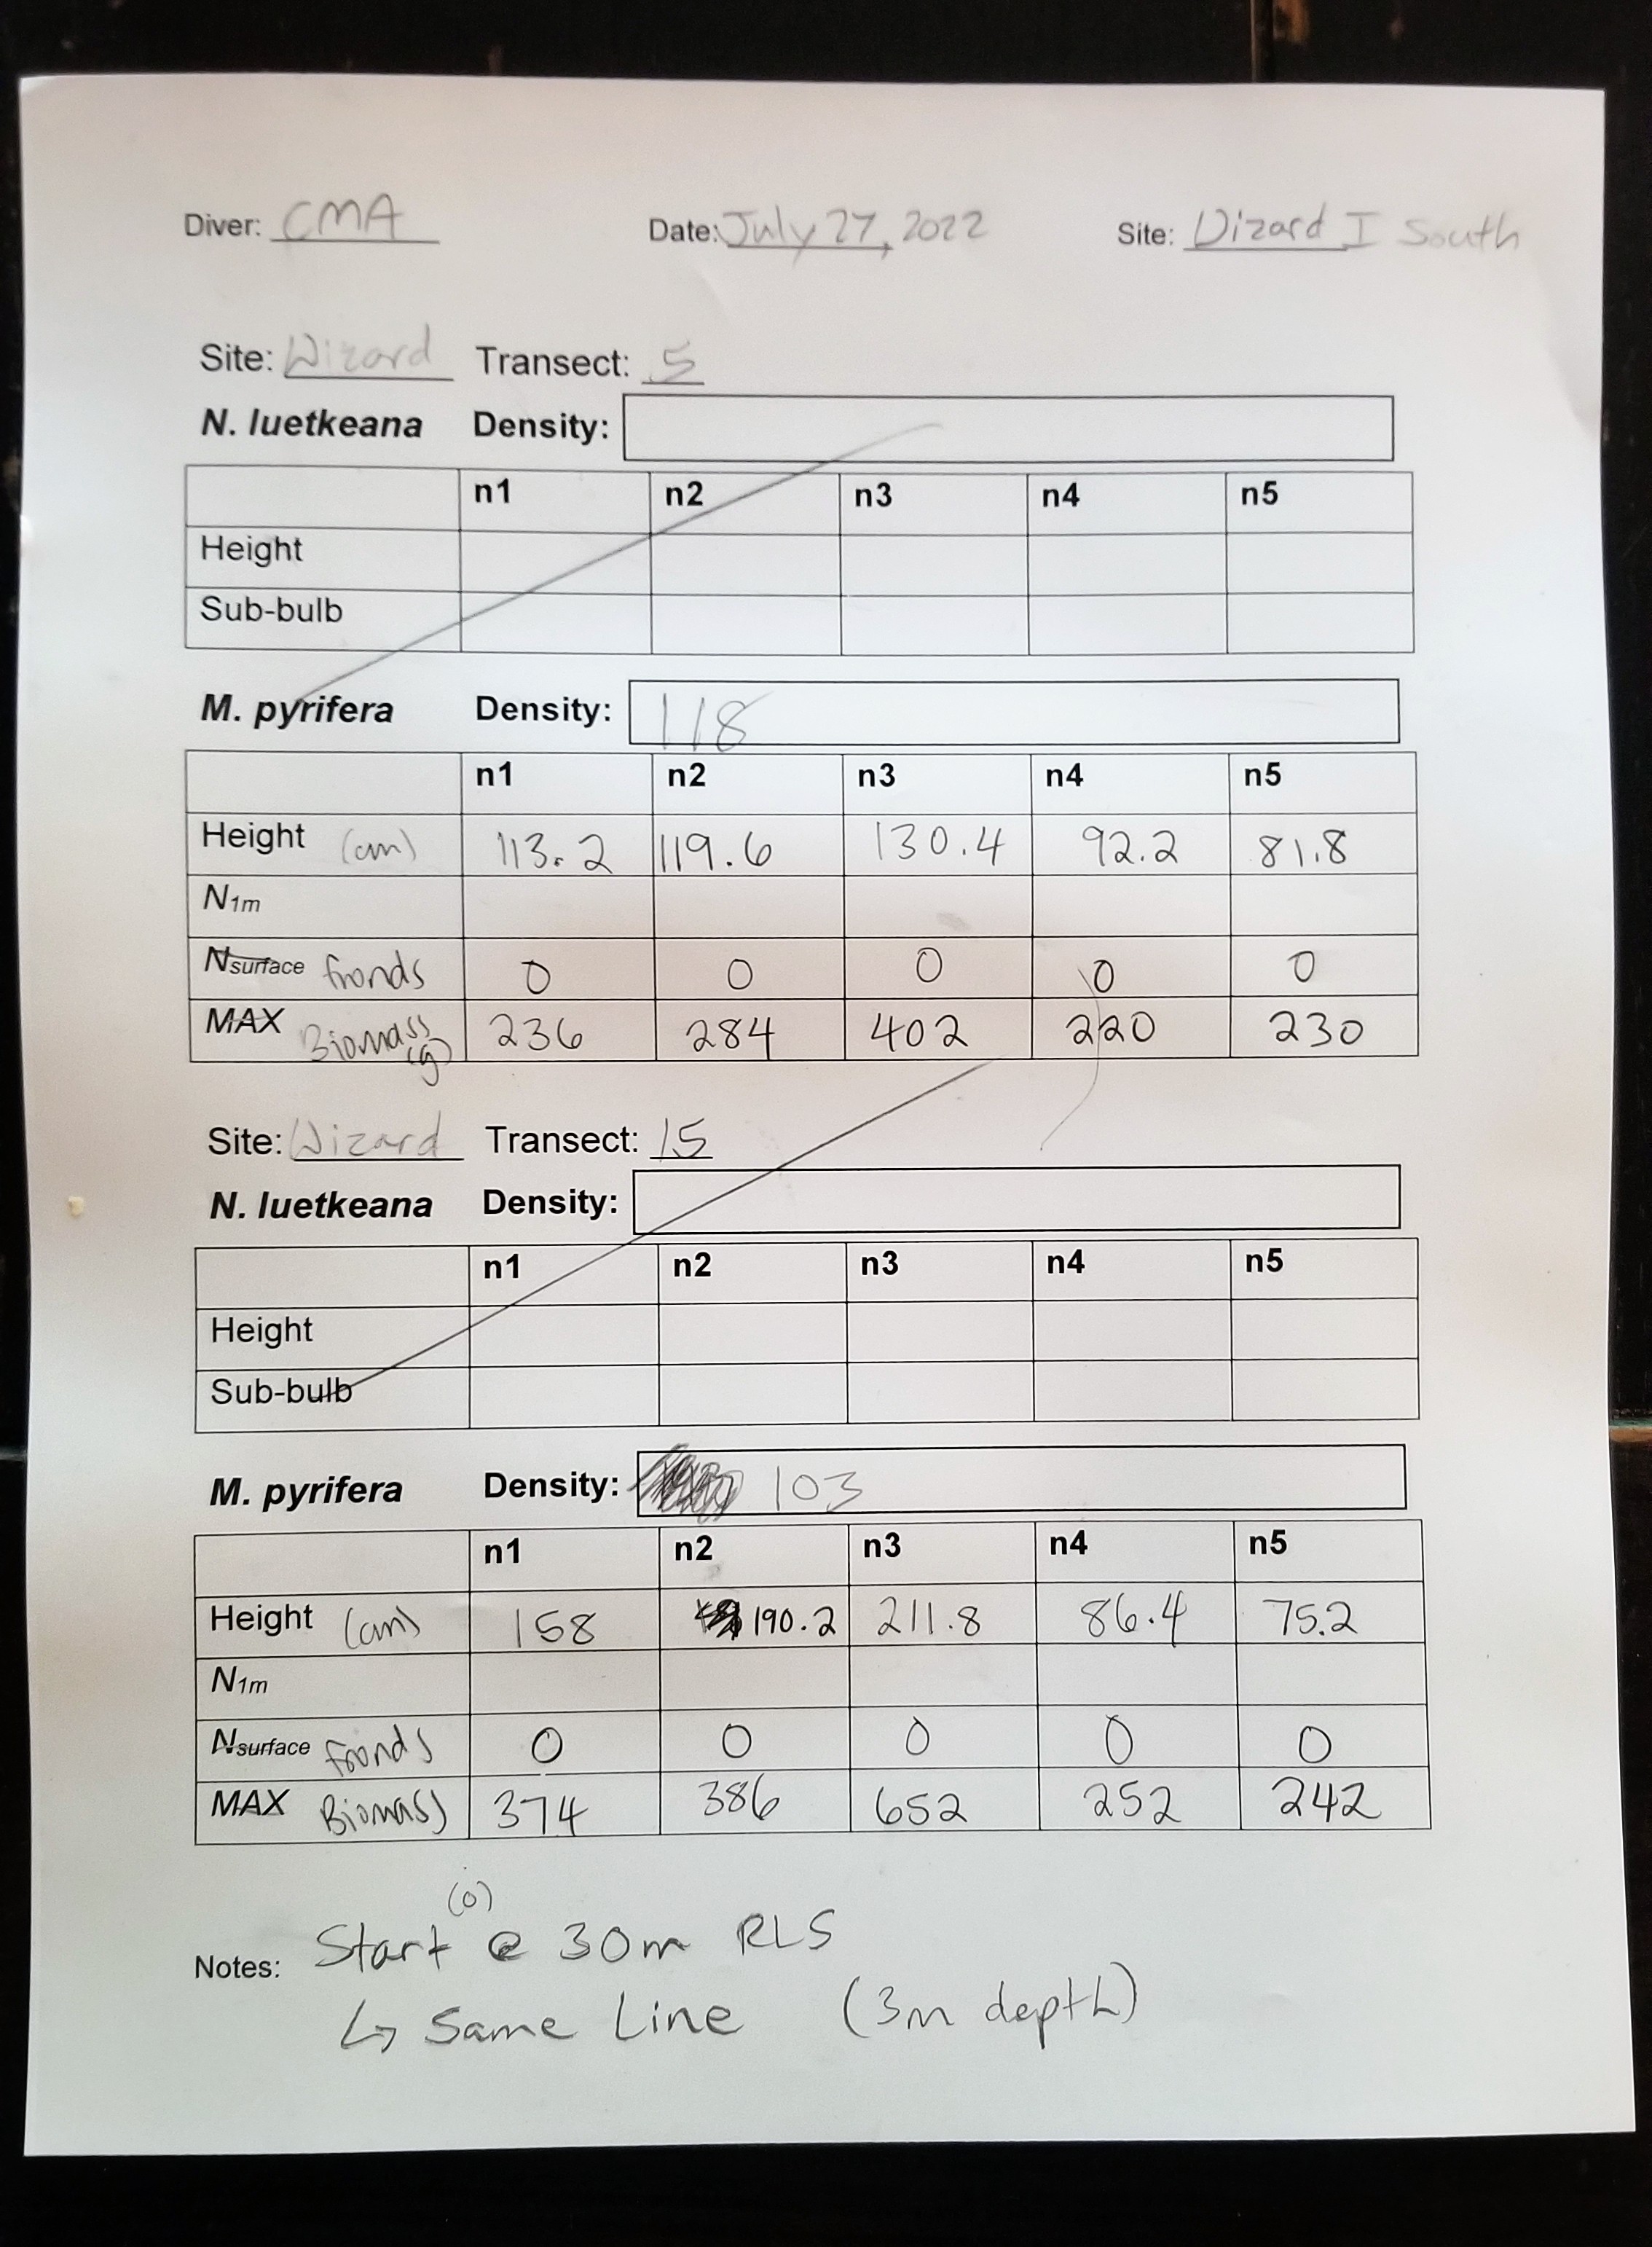 Diver: CMA Date: July 27, 2022 Site: Wizard I South
Site: Wizard Transect: 5
N. luetkeana Density:
n1 n2 n3 n4 n5
Height
Sub-bulb
M. pyrifera Density: 118
n1 n2 n3 n4 n5
Height (cm) 113.2 119.6 130.4 92.2 81.8
N1m
Nsurface fronds 0 0 0 0 0
MAX Biomass (g) 236 284 402 220 230
Site: Wizard Transect: 15
N. luetkeana Density:
n1 n2 n3 n4 n5
Height
Sub-bulb
M. pyrifera Density: 103
n1 n2 n3 n4 n5
Height (cm) 158 190.2 211.8 86.4 75.2
N1m
Nsurface fronds 0 0 0 0 0
MAX Biomass 374 386 652 252 242
(0)
Notes: Start @ 30m RLS
↳ Same Line (3m depth)